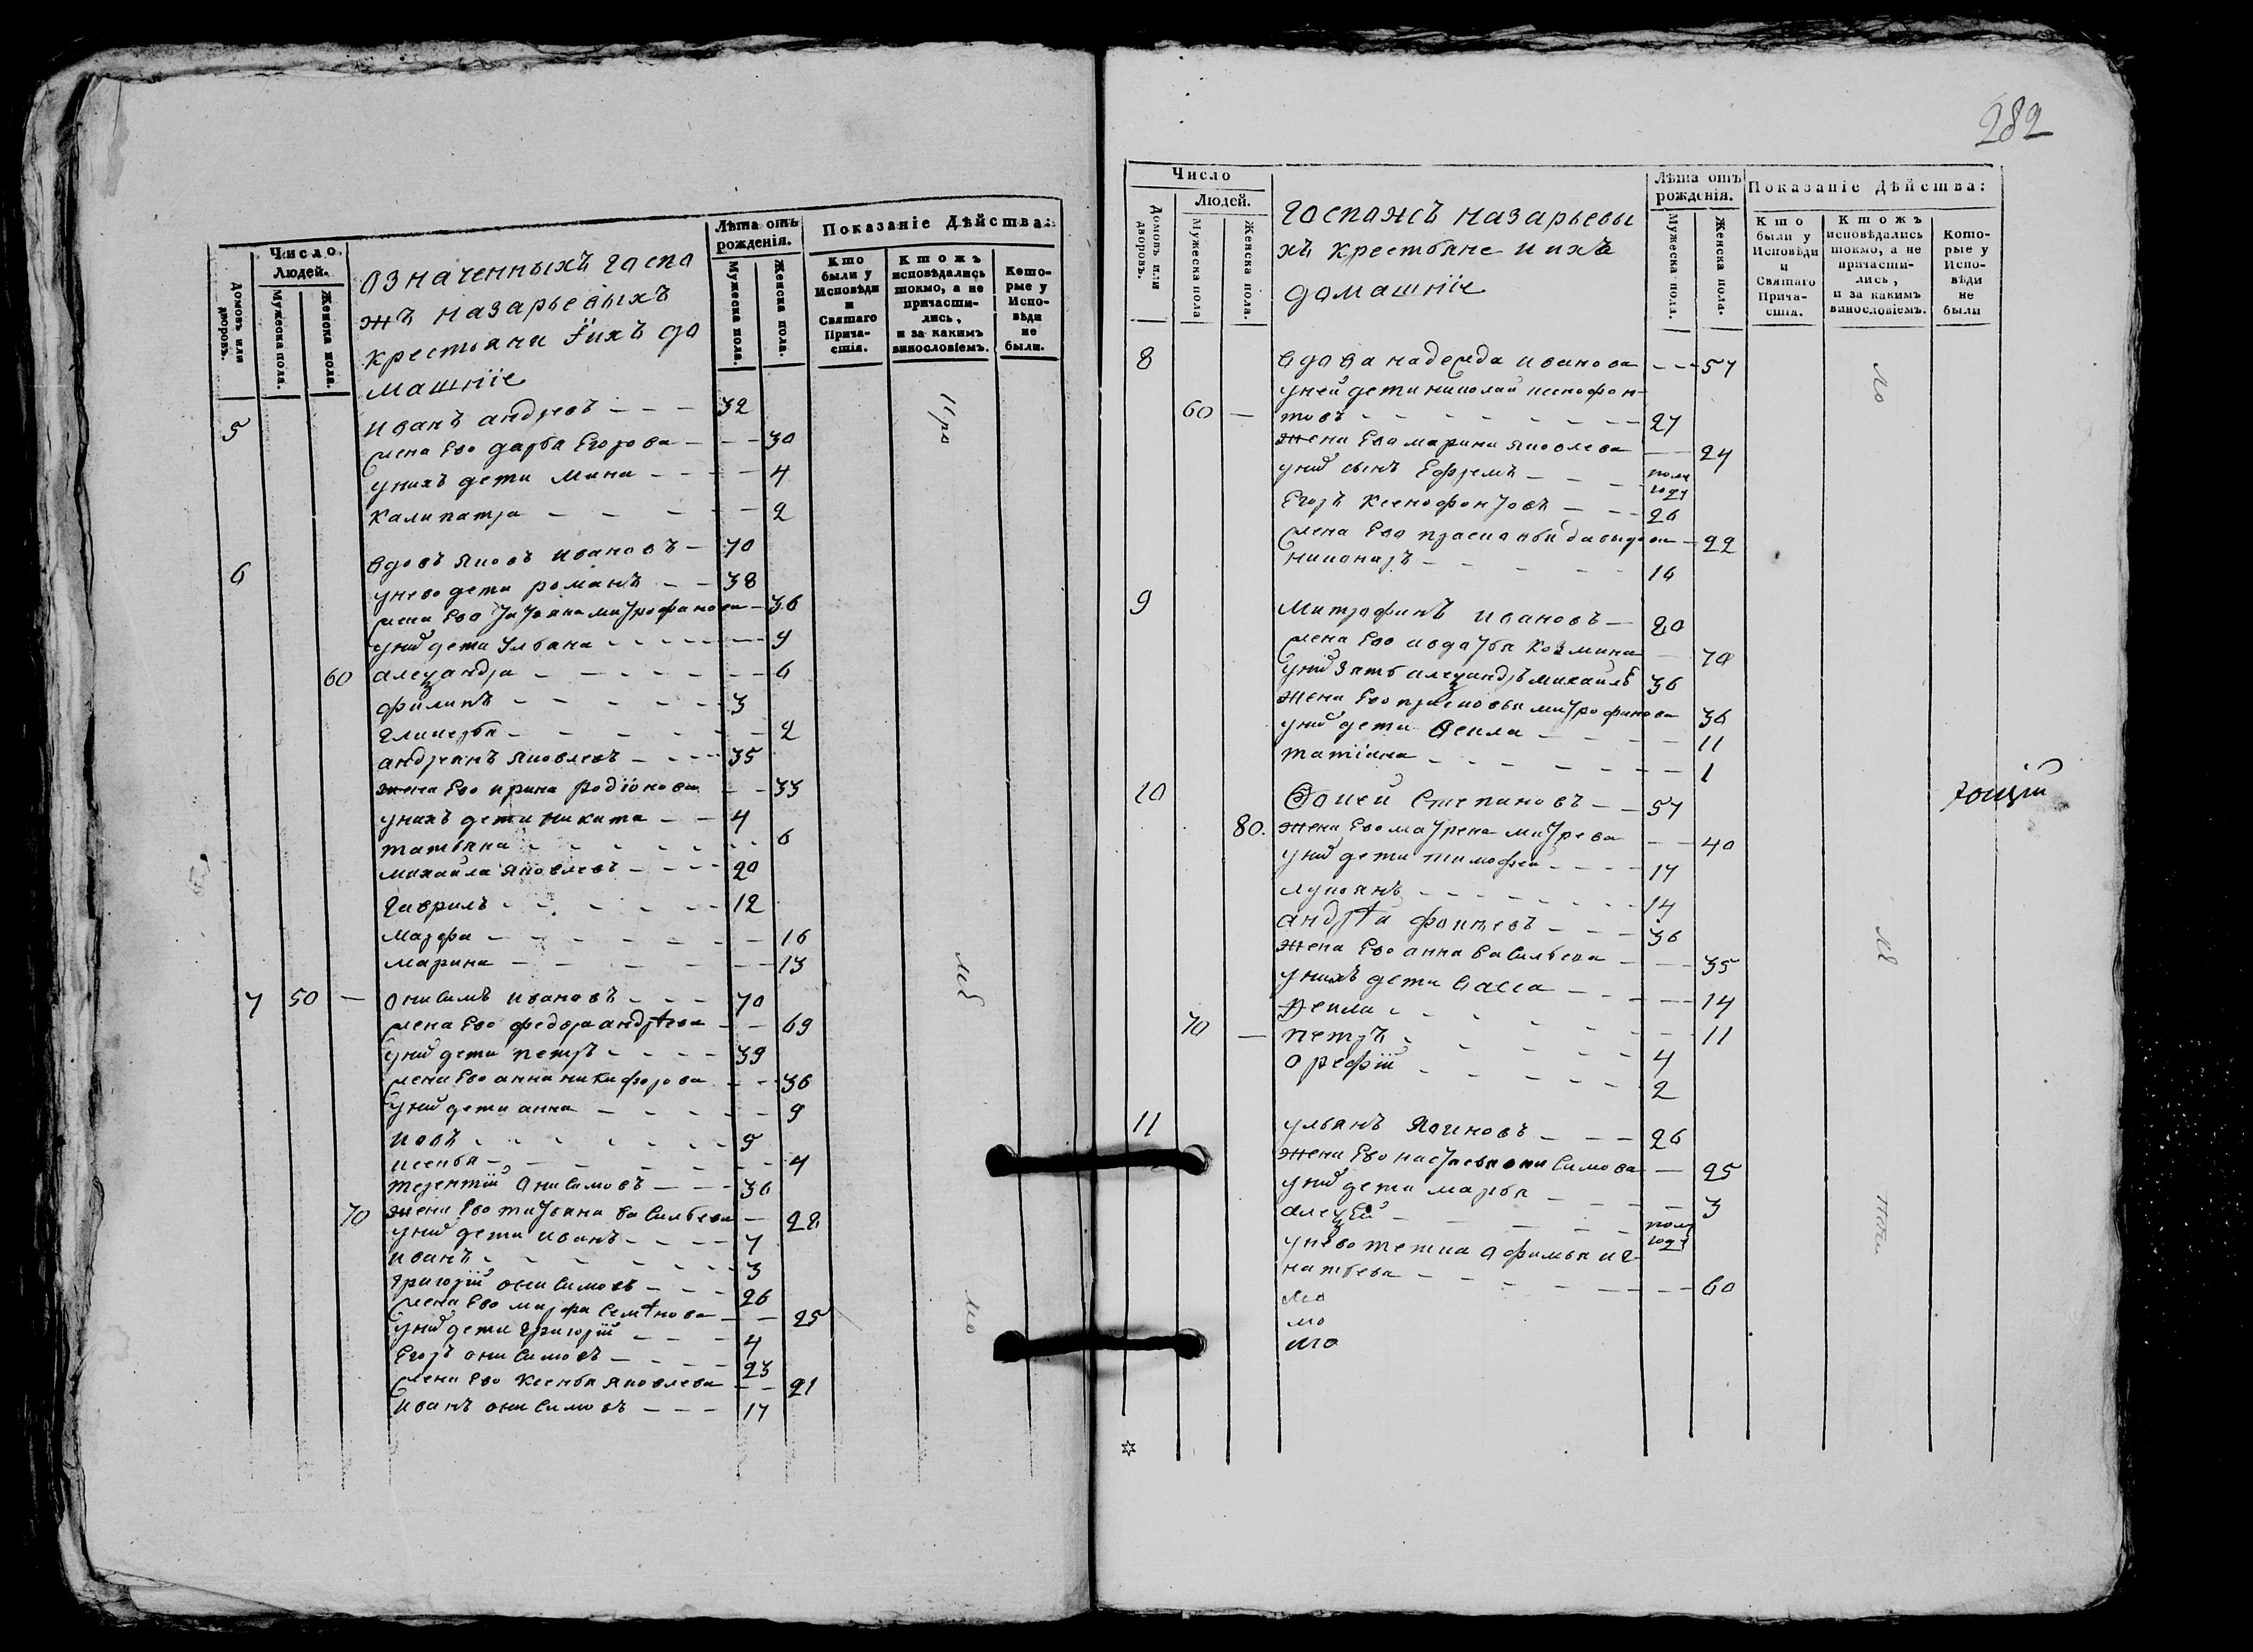 Число
Людей.
Домовъ или дворовъ.
Мужеска пола.
Женска пола.
означенныхъ госпо
жъ назарьевыхъ
крестьяни ихъ до
машніе
Лѣта отъ рожденія.
Мужеска пола.
Женска пола.
Показаніе Дѣйства:
Кто были у Исповѣди и Святаго Причастія.
Ктожъ исповѣдались токмо, а не причастились, и за какимъ винословіемъ.
Которые у Исповѣди не были.
5 иванъ андреевъ - - - 32
жена Ево дарья Егорова - - - 30
унихъ дети Мина - - - 4
Калипатра - - - 2
6 вдовъ яковъ ивановъ - 70
унево дети романъ - - 38
жена Ево татьяна митрофанова - 36
унихъ дети Ульяна - - - 9
60 алеѯандра - - - 6
филипъ - - - 3
гликерья - - - 2
андреянъ яковлевъ - - - 35
жена Ево ирина родіонова - - 33
унихъ дети никита - - 4
татьяна - - - 6
михаила яковлевъ - - - 20
гаврилъ - - - 12
марфа - - - 16
марина - - - 13
7 50 — онисимъ ивановъ - - - 70
жена Ево федора андрѣева - - 69
унихъ дети петръ - - - 39
жена Ево анна никифорова - - 36
унихъ дети анна - - - 9
иовъ - - - 5
ксенья - - - 4
терентій онисимовъ - - - 36
70 жена Ево татьяна васильева - 28
унихъ дети иванъ - - - 7
иванъ - - - 3
григорій онисимовъ - - - 26
жена Ево марфа семѣнова - - 25
унихъ дети григорій - - - 4
Егоръ онисимовъ - - - 23
жена Ево Ксенья яковлева - - 21
иванъ онисимовъ - - - 17
282
Число
Людей.
Домовъ или дворовъ.
Мужеска пола
Женска пола.
госпожъ назарьевы
хъ крестьяне иихъ
домашніе
Лѣта отъ рожденія.
Мужеска пола.
Женска пола.
Показаніе Дѣйства:
Кто были у Исповѣди и Святаго Причастія.
Ктожъ исповѣдались токмо, а не причастились, и за какимъ винословіемъ.
Которые у Исповѣди не были
8 вдова надежда иванова - - - 57
уней дети николай ксенофон-
60 — товъ - - - 27
жена Ево марина яковлева - - 24
унихъ сынъ Ефремъ - - - полъ году
Егоръ Ксенофонтовъ - - - 26
жена Ево прасковья давыдова - 22
никоноръ - - - 16
9 Митрофанъ ивановъ - 80
жена Ево авдотья козмина - 70
унихъ зять алеѯандръ михайлъ 36
жена Ево прасковья митрофанова 36
унихъ дети Ѳекла - - - 11
татіана - - - 1
10 Ѳокей Степановъ - - 57
80. жена Ево матрена митрева - - 40
унихъ дети тимофеи - - - 17
лукоянъ - - - 14
андрѣй фокѣевъ - - - 36
жена Ево анна васильева - - 35
унихъ дети васса - - - 14
Ѳекла - - - 11
70 — петръ - - - 4
орефій - - - 2
11 ульянъ логиновъ - - - 26
жена Ево настасья онисимова - 25
унихъ дети марья - - - 3
алеѯѣй - - - полъ году
унево тетка афимья иг-
натьева - - - 60
мо
мо
мо